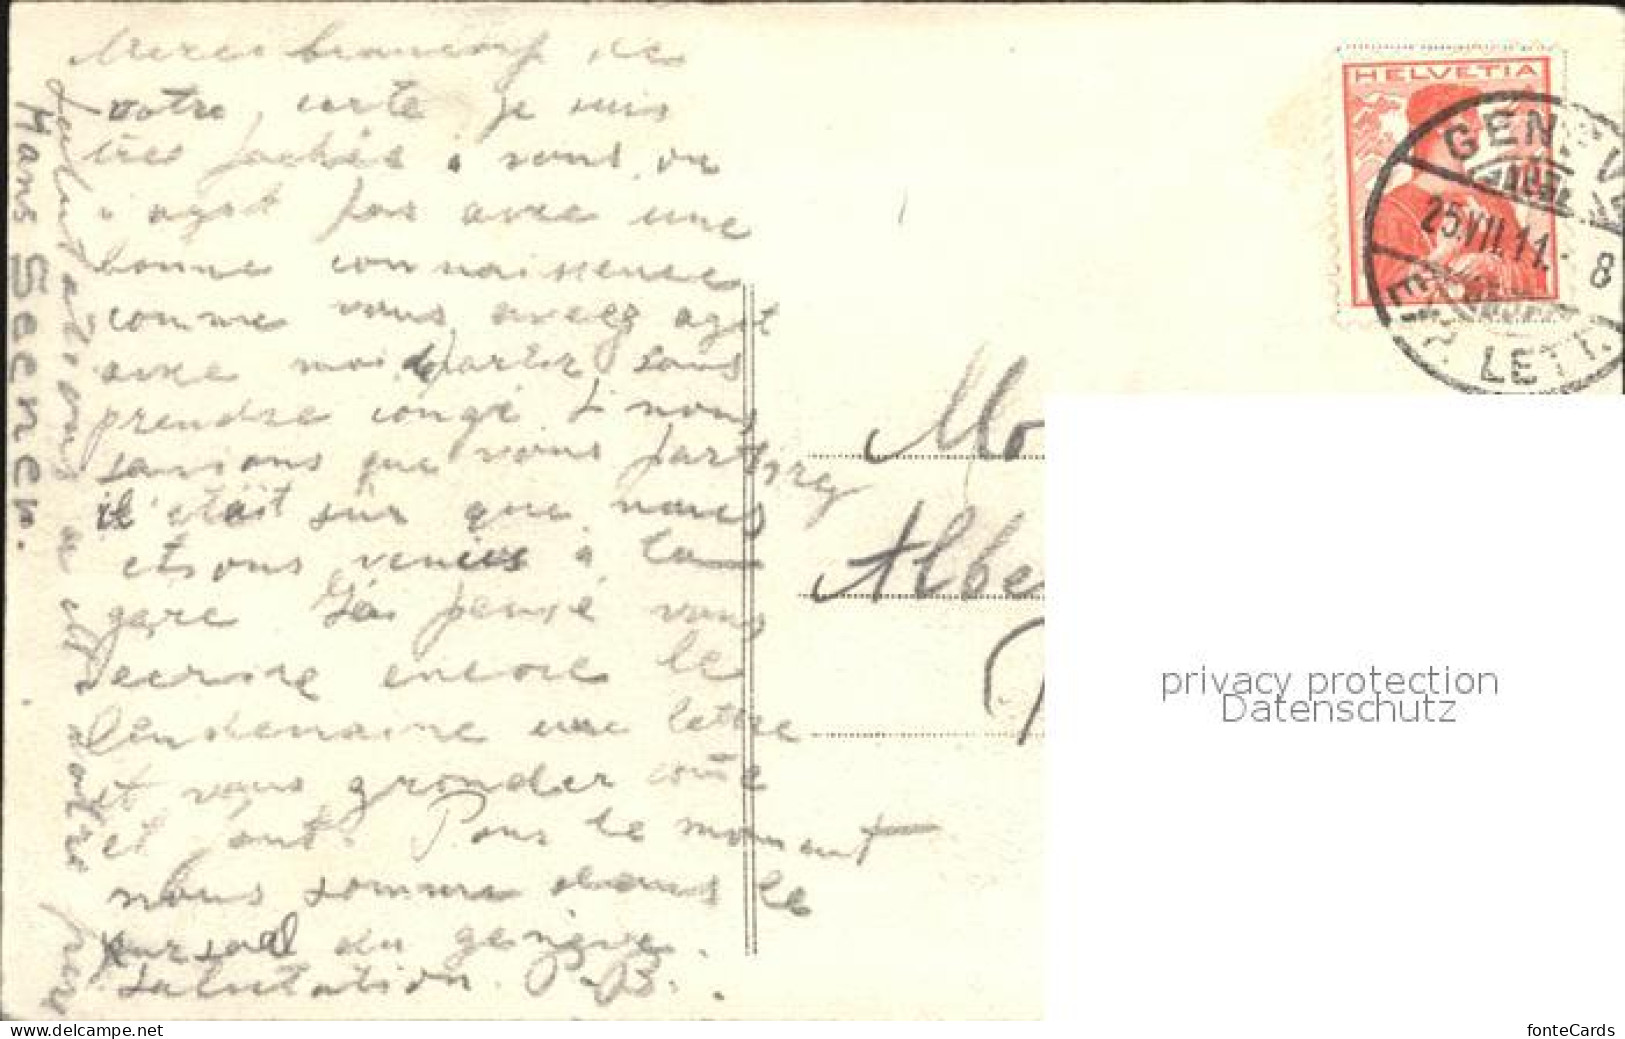 Merci beaucoup de
votre carte je suis
très fachée, vous, on
agit pas avec une
bonne connaissence
comme vous avez agit
avec moi, parler sans
prendre congé. Si nous
savions que vous partirez
il était sûr que nous
etsons venues à la
gare J'ai pensé vous
ecrire encore le
lendemaine une lettre
et vous gronder comme
et faut. Pour le moment
nous somme dans le
Kursaal du genève.
Salutation. B.
Salutations a et votre père
Hans Seener.
HELVETIA
GENÈVE
25.VII.11. 8
EXP. LETT.
Mo
Albe
privacy protection
Datenschutz
www.delcampe.net
fonteCards